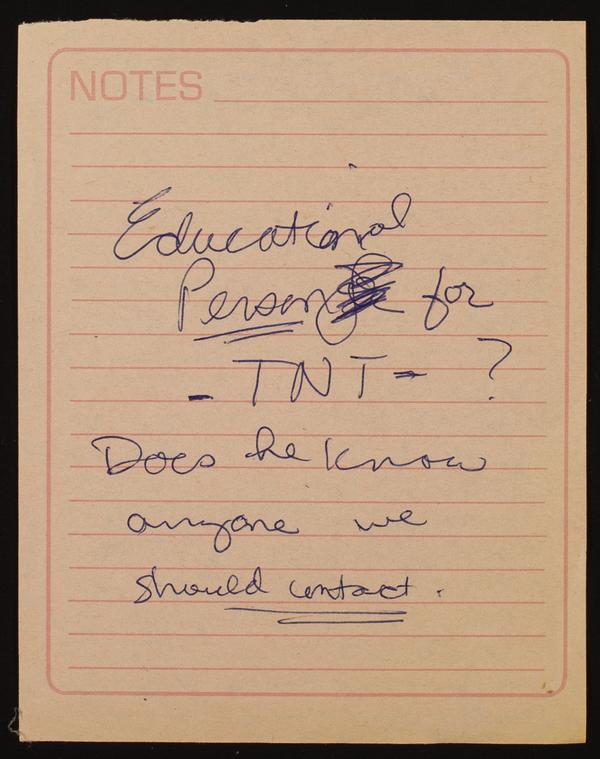 NOTES
Educational
Person for
- TNT - ?
Does he know
anyone we
should contact.